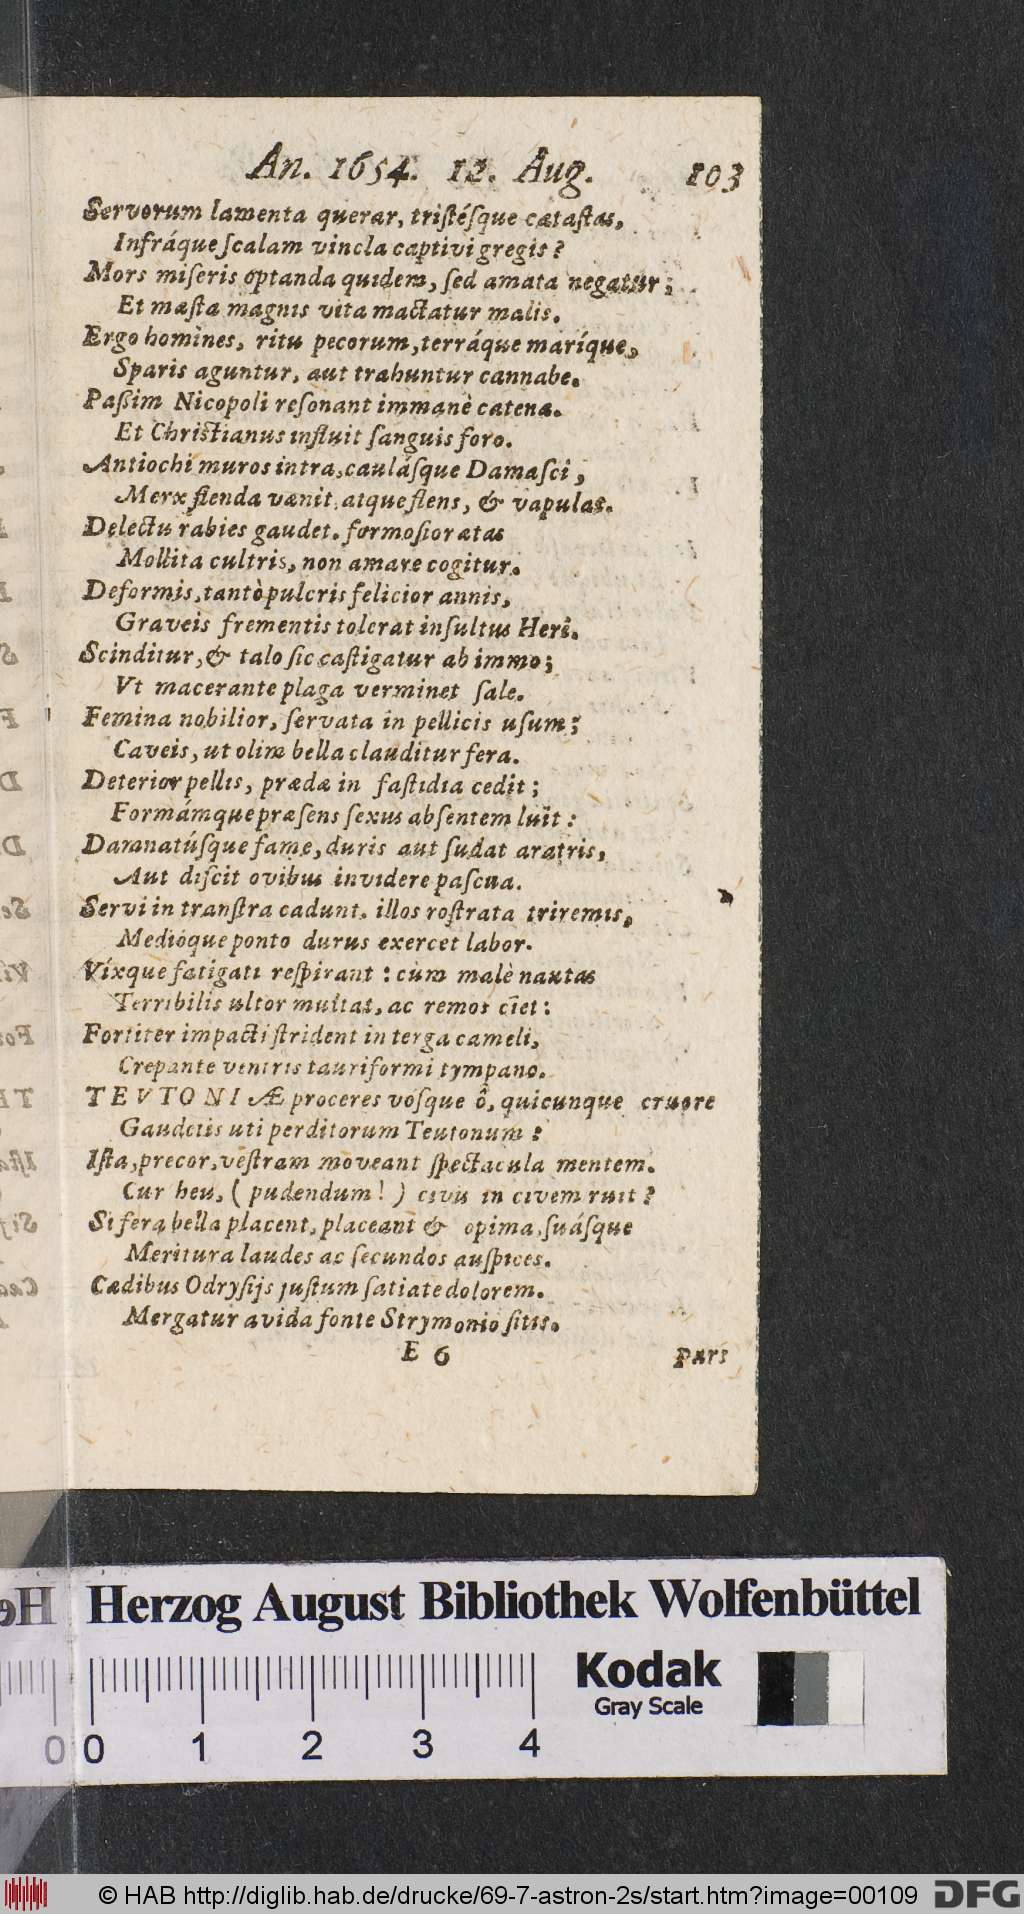 An. 1654. 12. Aug. 103
Servorum lamenta querar, tristésque catastas,
Infráque scalam vincla captivi gregis?
Mors miseris optanda quidem, sed amata negatur;
Et mæsta magnis vita mactatur malis.
Ergo homines, ritu pecorum, terráque maríque,
Sparis aguntur, aut trahuntur cannabe.
Paßim Nicopoli resonant immanè catenæ.
Et Christianus influit sanguis foro.
Antiochi muros intra, caulásque Damasci,
Merx flenda vænit, atque flens, & vapulas.
Delectu rabies gaudet. formosior ætas
Mollita cultris, non amare cogitur.
Deformis, tantò pulcris felicior annis,
Graveis frementis tolerat insultus Heri.
Scinditur, & talo sic castigatur ab immo;
Vt macerante plaga verminet sale.
Femina nobilior, servata in pellicis usum;
Caveis, ut olim bella clauditur fera.
Deterior pellis, prædæ in fastidia cedit;
Formámque præsens sexus absentem luit:
Damnatúsque fame, duris aut sudat aratris,
Aut discit ovibus invidere pascua.
Servi in transtra cadunt. illos rostrata triremis,
Medióque ponto durus exercet labor.
Víxque fatigati respirant: cùm malè nautas
Terribilis ultor multat, ac remos ciet:
Fortiter impacti strident in terga cameli,
Crepante ventris tauriformi tympano.
TEVTONIÆ proceres vosque ô, quicunque cruore
Gaudetis uti perditorum Teutonum:
Ista, precor, vestram moveant spectacula mentem.
Cur heu, (pudendum!) civis in civem ruit?
Si fera bella placent, placeant & opima, suásque
Meritura laudes ac secundos auspices.
Cædibus Odrysijs justum satiate dolorem.
Mergatur avida fonte Strymonio sitis.
E 6 pars
Herzog August Bibliothek Wolfenbüttel
Kodak
Gray Scale
0 0 1 2 3 4
© HAB http://diglib.hab.de/drucke/69-7-astron-2s/start.htm?image=00109 DFG